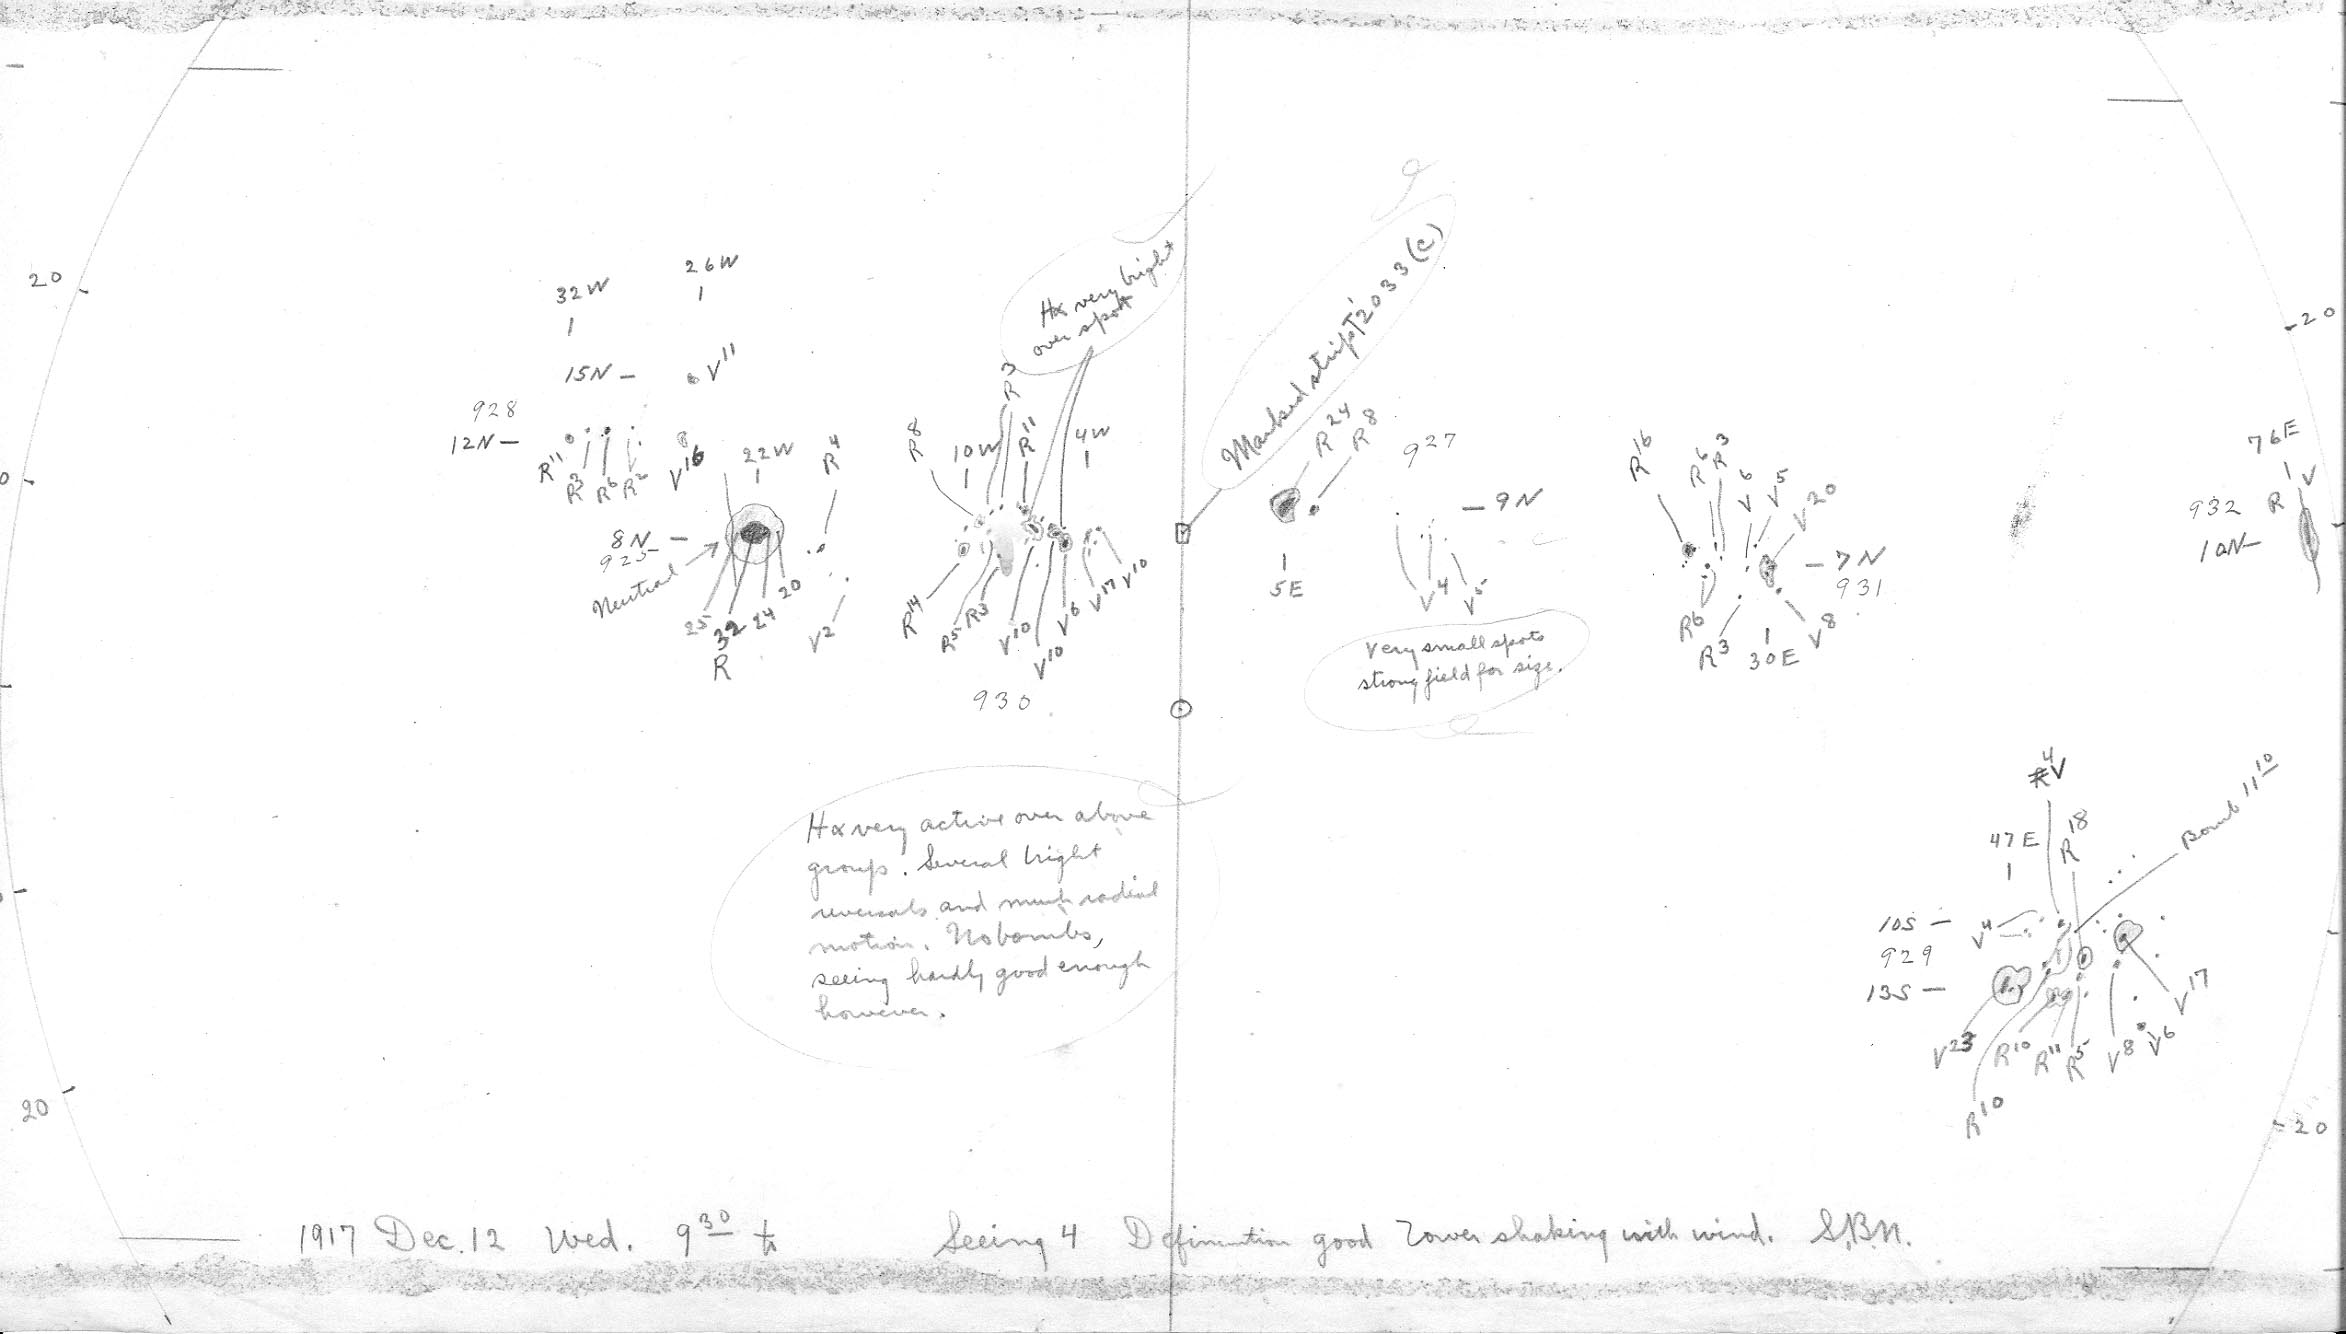 20
20
20
20
0
32W
26W
15N –
V11
928
12N –
R11
R3
R6
R2
V16
22W
R4
8N –
925
Neutral
25
32
24
20
R
V2
Hα very bright
over spot
R3
R8
10W
R11
4W
R14
R5
R3
V10
V10
V6
V17
V10
930
Marked strip T2033 (C)
R24
R8
927
5E
– 9N
V4
V5
Very small spots
strong field for size.
R16
R6
R3
V6
V5
V20
– 7N
931
R6
R3
30E
V8
76E
R
V
932
10N –
Hα very active over above
group. Several bright
reversals and much radial
motion. No bombs,
seeing hardly good enough
however.
V4
47E
R18
Bomb 11 10
10S –
V4
929
13S –
V23
R10
R11
R5
V8
V6
V17
R10
1917 Dec. 12 Wed. 9 30 Seeing 4 Definintion good Tower shaking with wind. S.B.N.